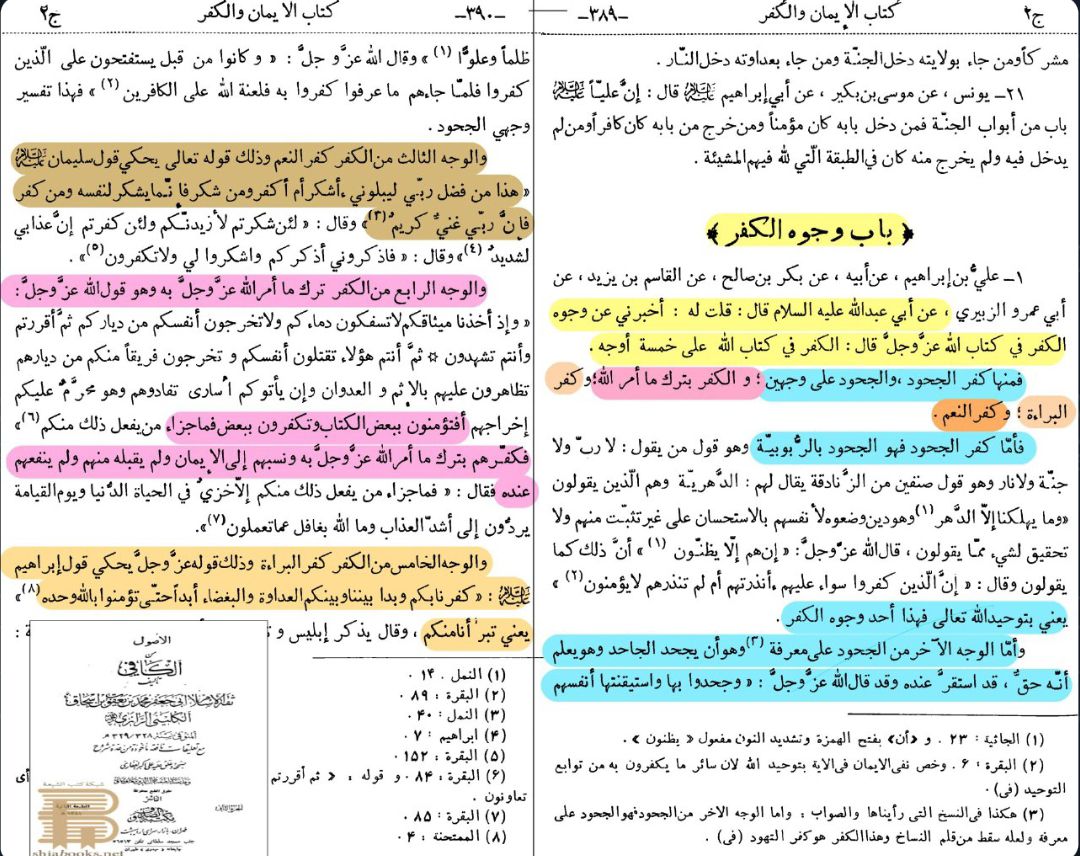 ج٢ كتاب الإيمان والكفر -٣٨٩-
مشركاً ومن جاء بولايته دخل الجنّة ومن جاء بعداوته دخل النّار .
٢١ـ يونس ، عن موسى بن بكير ، عن أبي إبراهيم عليه السلام قال : إنَّ عليّاً عليه السلام
باب من أبواب الجنّة فمن دخل بابه كان مؤمناً ومن خرج من بابه كان كافراً ومن لم
يدخل فيه ولم يخرج منه كان في الطبقة الّتي لله فيهم المشيئة .
﴿ باب وجوه الكفر ﴾
١ـ عليُّ بن إبراهيم ، عن أبيه ، عن بكر بن صالح ، عن القاسم بن يزيد ، عن
أبي عمرو الزبيري ، عن أبي عبدالله عليه السلام قال : قلت له : أخبرني عن وجوه
الكفر في كتاب الله عزَّ وجلَّ قال : الكفر في كتاب الله على خمسة أوجه .
فمنها كفر الجحود ، والجحود على وجهين ؛ و الكفر بترك ما أمر الله ؛ و كفر
البراءة ؛ و كفر النعم .
فأمّا كفر الجحود فهو الجحود بالرُّبوبيّة وهو قول من يقول : لا ربّ ولا
جنّة ولا نار وهو قول صنفين من الزَّنادقة يقال لهم : الدَّهريّة وهم الّذين يقولون
«وما يهلكنا إلاّ الدَّهر (١) وهو دين وضعوه لأنفسهم بالاستحسان على غير تثبّت منهم ولا
تحقيق لشيء ممّا يقولون ، قال الله عزَّ وجلَّ : « إن هم إلّا يظنّون (١) » أنَّ ذلك كما
يقولون وقال : « إنَّ الّذين كفروا سواء عليهم ءأنذرتهم أم لم تنذرهم لا يؤمنون (٢) »
يعني بتوحيد الله تعالى فهذا أحد وجوه الكفر .
وأمّا الوجه الآخر من الجحود على معرفة (٣) وهو أن يجحد الجاحد وهو يعلم
أنّه حقٌّ ، قد استقرَّ عنده وقد قال الله عزَّ وجلَّ : « وجحدوا بها واستيقنتها أنفسهم
(١) الجاثية : ٢٣ . و «أن» بفتح الهمزة وتشديد النون مفعول « يظنون » .
(٢) البقرة : ٦ . وخص نفى الايمان فى الاية بتوحيد الله لان سائر ما يكفرون به من توابع
التوحيد (فى) .
(٣) هكذا فى النسخ التى رأيناها والصواب : واما الوجه الاخر من الجحود فهو الجحود على
معرفة ولعله سقط من قلم النساخ وهذا الكفر هو كفر التهود (فى) .
ج٢ كتاب الايمان والكفر -٣٩٠-
ظلماً وعلوًّا (١) » وقال الله عزَّ وجلَّ : « وكانوا من قبل يستفتحون على الّذين
كفروا فلمّا جاءهم ما عرفوا كفروا به فلعنة الله على الكافرين (٢) » فهذا تفسير
وجهي الجحود .
والوجه الثالث من الكفر كفر النعم وذلك قوله تعالى يحكي قول سليمان عليه السلام
« هذا من فضل ربّي ليبلوني ءأشكر أم أكفر ومن شكر فإنّما يشكر لنفسه ومن كفر
فإنَّ ربّي غنيٌّ كريمٌ (٣) » وقال : « لئن شكرتم لأزيدنّكم ولئن كفرتم إنَّ عذابي
لشديدٌ (٤) » وقال : « فاذكروني أذكركم واشكروا لي ولا تكفرون (٥) » .
والوجه الرابع من الكفر ترك ما أمر الله عزَّ وجلَّ به وهو قول الله عزَّ وجلَّ :
« وإذ أخذنا ميثاقكم لا تسفكون دماءكم ولا تخرجون أنفسكم من دياركم ثمَّ أقررتم
وأنتم تشهدون ※ ثمَّ أنتم هؤلاء تقتلون أنفسكم و تخرجون فريقاً منكم من ديارهم
تظاهرون عليهم بالاثم و العدوان وإن يأتوكم أُسارى تفادوهم وهو محرَّمٌ عليكم
إخراجهم أفتؤمنون ببعض الكتاب وتكفرون ببعض فما جزاء من يفعل ذلك منكم (٦) »
فكفّرهم بترك ما أمر الله عزَّ وجلَّ به ونسبهم إلى الإيمان ولم يقبله منهم ولم ينفعهم
عنده فقال : « فما جزاء من يفعل ذلك منكم إلّا خزيٌ في الحياة الدُّنيا ويوم القيامة
يردُّون إلى أشدِّ العذاب وما الله بغافل عما تعملون (٧) » .
والوجه الخامس من الكفر كفر البراءة وذلك قوله عزَّ وجلَّ يحكي قول إبراهيم
عليه السلام : « كفرنا بكم وبدا بيننا وبينكم العداوة والبغضاء أبداً حتّى تؤمنوا بالله وحده (٨) »
يعني تبرَّأنا منكم ، وقال يذكر إبليس و :
(١) النمل . ١٤ ٠
(٢) البقرة : ٨٩ ٠
(٣) النمل : ٤٠ ٠
(٤) ابراهيم : ٧ ٠
(٥) البقرة : ١٥٢ ٠
(٦) البقرة : ٨٤ ٠ و قوله : « ثم أقررتم أى
تعاونون .
(٧) البقرة : ٨٥ ٠
(٨) الممتحنة : ٤ ٠
الاصول
من
الكافي
تأليف
ثقة الاسلام أبي جعفر محمد بن يعقوب بن اسحاق
الكليني الرازي
المتوفى في سنة ٣٢٨/٣٢٩ ه
الجزء الثاني
شبكة كتب الشيعة
shiabooks.net